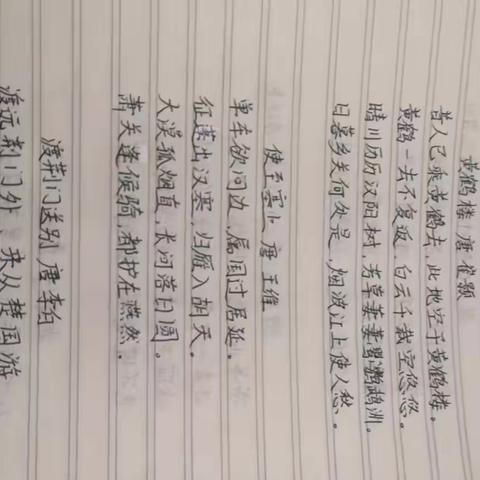 黄鹤楼 唐 崔颢
昔人已乘黄鹤去，此地空于黄鹤楼。
黄鹤一去不复返，白云千载空悠悠。
晴川历历汉阳树，芳草萋萋鹦鹉洲。
日暮乡关何处是，烟波江上使人愁。
使至塞上 唐 王维
单车欲问边，属国过居延。
征蓬出汉塞，归雁入胡天。
大漠孤烟直，长河落日圆。
萧关逢候骑，都护在燕然。
渡荆门送别 唐 李白
渡远荆门外，来从楚国游